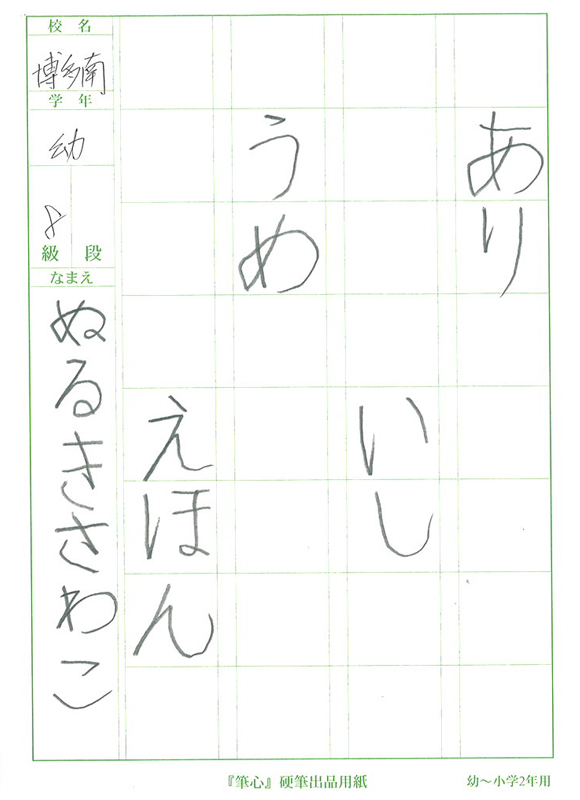 あり
いし
うめ
えほん
校名
博多南
学年
幼
8
級 段
なまえ
ぬるきさわこ
『筆心』硬筆出品用紙
幼〜小学2年用